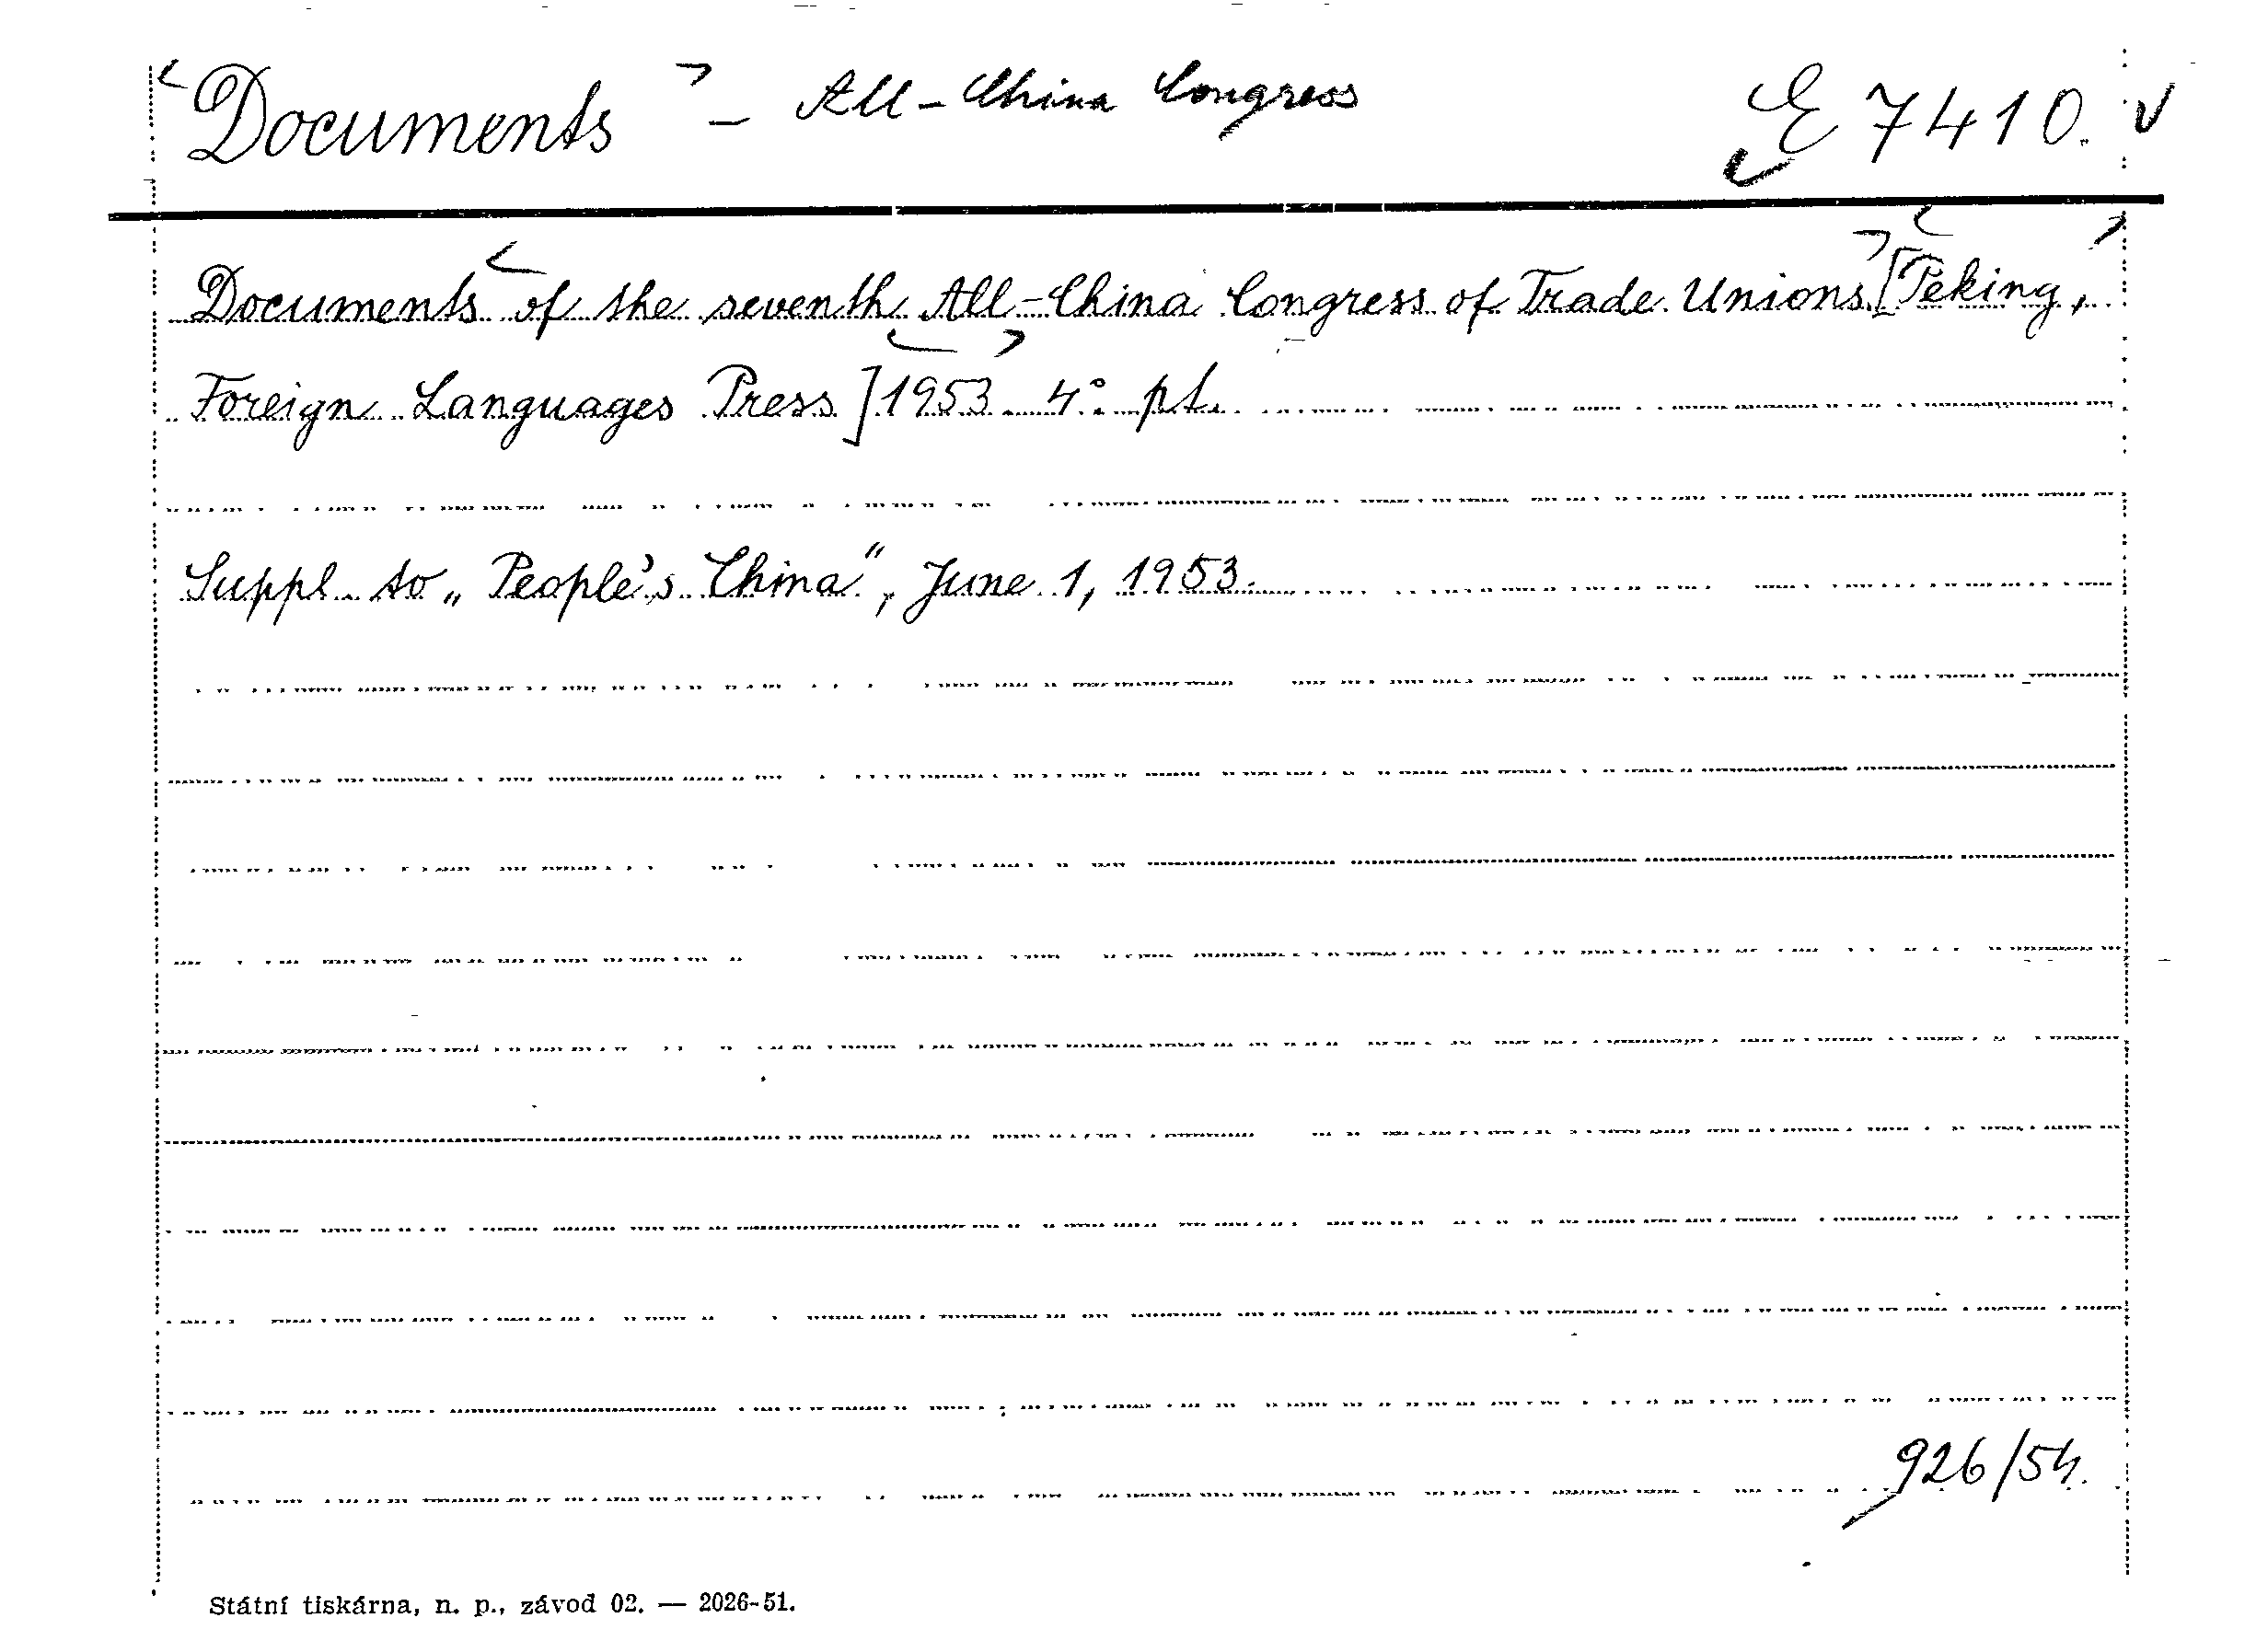 Documents - All-China Congress E 7410.
Documents of the seventh All-China Congress of Trade Unions. [Peking,
Foreign Languages Press] 1953. 4° pt.
Suppl. to „People's China", June 1, 1953.
926/54.
Státní tiskárna, n. p., závod 02. — 2026-51.